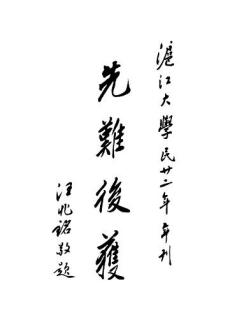 滬江大學民廿二年年刊
先難後獲
汪兆銘敬題